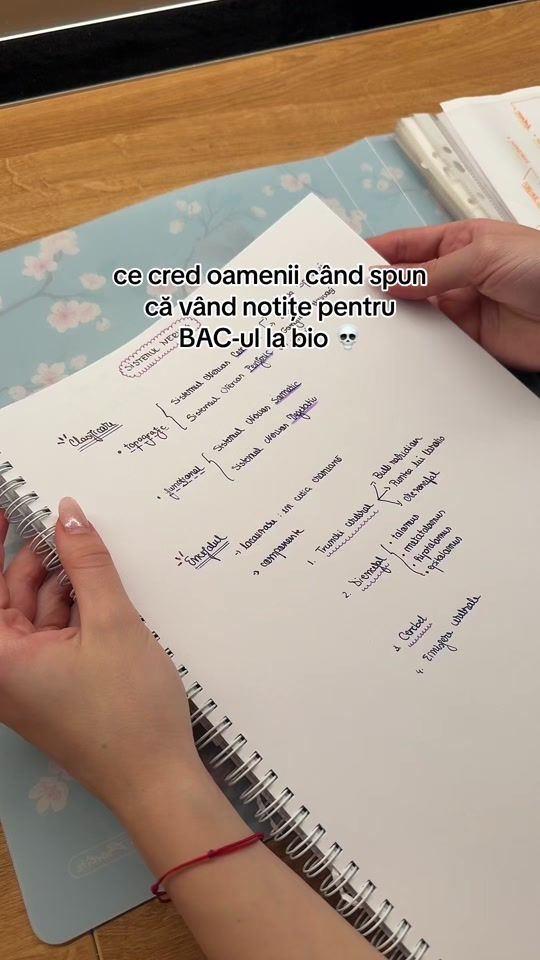 ce cred oamenii când spun
că vând notițe pentru
BAC-ul la bio 💀
SISTEMUL
Clasificare
• topografic
Sistemul nervos
Sistemul nervos Periferic
• funcțional
Sistemul nervos Somatic
Sistemul nervos Vegetativ
Encefalul
→ localizare: în cutia craniană
→ componente
1. Trunchi cerebral
→ Bulb rahidian
→ Puntea lui Varolio
→ Mezencefal
2. Diencefal
• talamus
• metatalamus
• hipotalamus
• epitalamus
3. Cerebel
4. Emisfere cerebrale